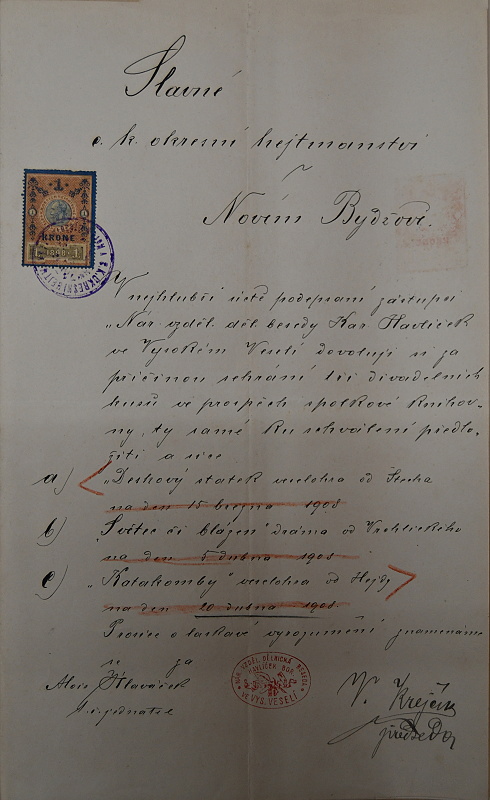 Slavné
c. k. okresní hejtmanství
v
Novém Bydžově.
1
KRONE
1898
V nejhlubší úctě podepsaní zástupci
„Nár. vzděl. děl. besedy Kar. Havlíček
ve Vysokém Veselí dovolují si za
příčinou sehrání tří divadelních
kusů ve prospěch spolkové knihov-
ny, ty samé ku schválení předlo-
žiti a sice
a) „Deskový statek veselohra od Štecha
na den 15 března 1908
b) „Světec či blázen" dráma od Vrchlického
na den 5 dubna 1908
c) „Katakomby" veselohra od
na den 20 dubna 1908.
Prosíce o laskavé vyrozumění znamenáme
se za
Alois Hlaváček
t. č. jednatel
NÁR. VZDĚL. DĚLNICKÁ BESEDA
HAVLÍČEK BOR.
VE VYS. VESELÍ
V. Krejčík
předseda